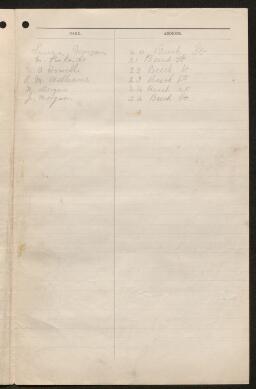 NAME. ADDRESS.
Morgan 20 Beech St
21 Beech St
23 Beech St
M. Williams 23 Beech St
Morgan 24 Beech St
J. Morgan 24 Beech St